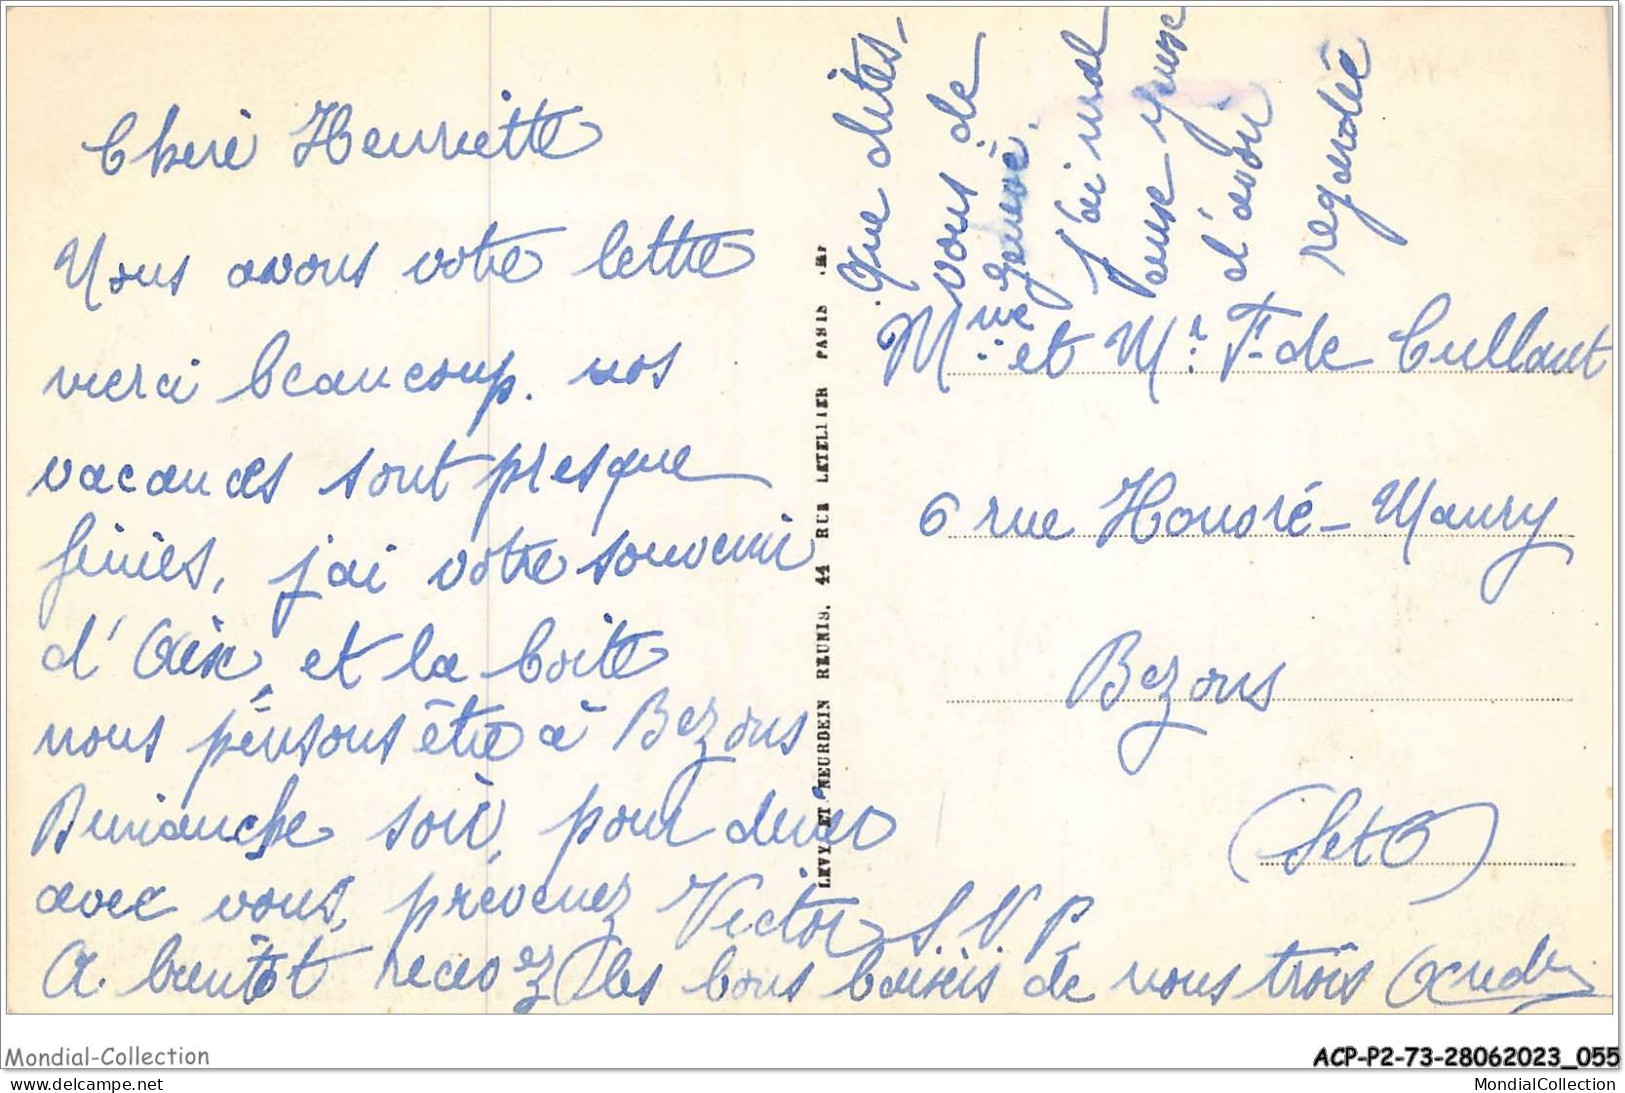 Cheri Henriette
Nous avons votre lettre
merci beaucoup. nos
vacances sont presque
finies, j'ai votre souvenir
d'Aix, et la boite
nous pensons être à Bezons
Dimanche soir, pour diner
avec vous, prevenez Victor S.V.P.
A. bientôt recevez les bons baisers de nous trois
LEVY ET NEURDEIN REUNIS, 44 RUE LETELLIER PARIS
Que dites-
vous de
j'ai mal
pense
d'avoir
regardée
Mme et Mr. F. de Cullant
6 rue Honoré-Maury
Bezons
(Set O)
Mondial-Collection
ACP-P2-73-28062023_055
www.delcampe.net
MondialCollection